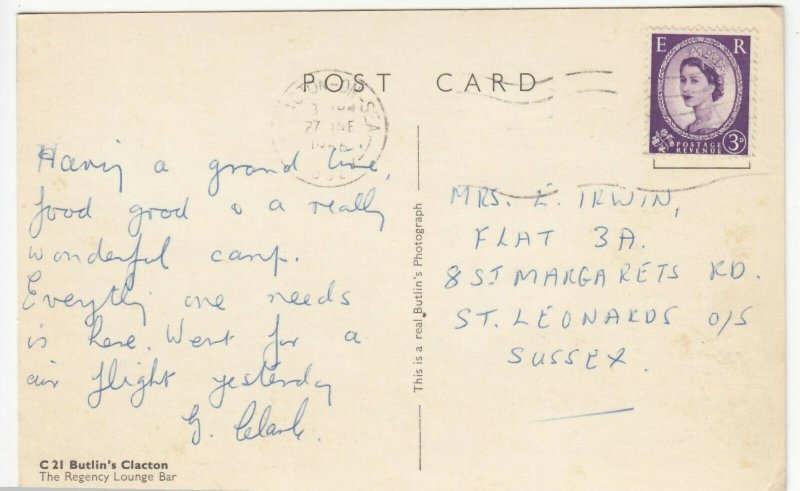 POST CARD
E R
POSTAGE
REVENUE
3D
27 JNE
Having a grand time,
food good & a really
wonderful camp.
Everything one needs
is here. Went for a
air flight yesterday
G. Clark.
MRS. E. IRWIN,
FLAT 3A.
8 ST MARGARETS RD.
ST. LEONARDS O/S
SUSSEX.
This is a real Butlin's Photograph
C 21 Butlin's Clacton
The Regency Lounge Bar